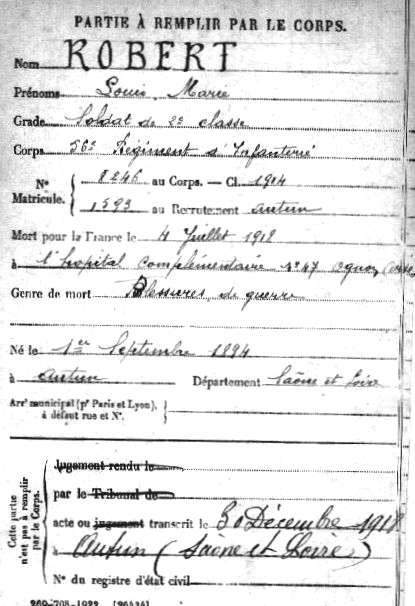 PARTIE À REMPLIR PAR LE CORPS.
Nom ROBERT
Prénoms Louis Marie
Grade Soldat de 2e classe
Corps 56e Régiment d'Infanterie
N° Matricule. { 8246 au Corps. — Cl. 1914
1593 au Recrutement Autun
Mort pour la France le 4 Juillet 1918
à l'hopital complémentaire n° 47 Ognon (Oise
Genre de mort Blessures de guerre
Né le 1er Septembre 1894
à Autun Département Saône et Loire
Arrt municipal (pr Paris et Lyon), à défaut rue et N°. {
Cette partie n'est pas à remplir par le Corps. {
Jugement rendu le
par le Tribunal de
acte ou jugement transcrit le 30 Décembre 1918
à Autun (Saône et Loire)
N° du registre d'état civil
269-708-1922. [26434]